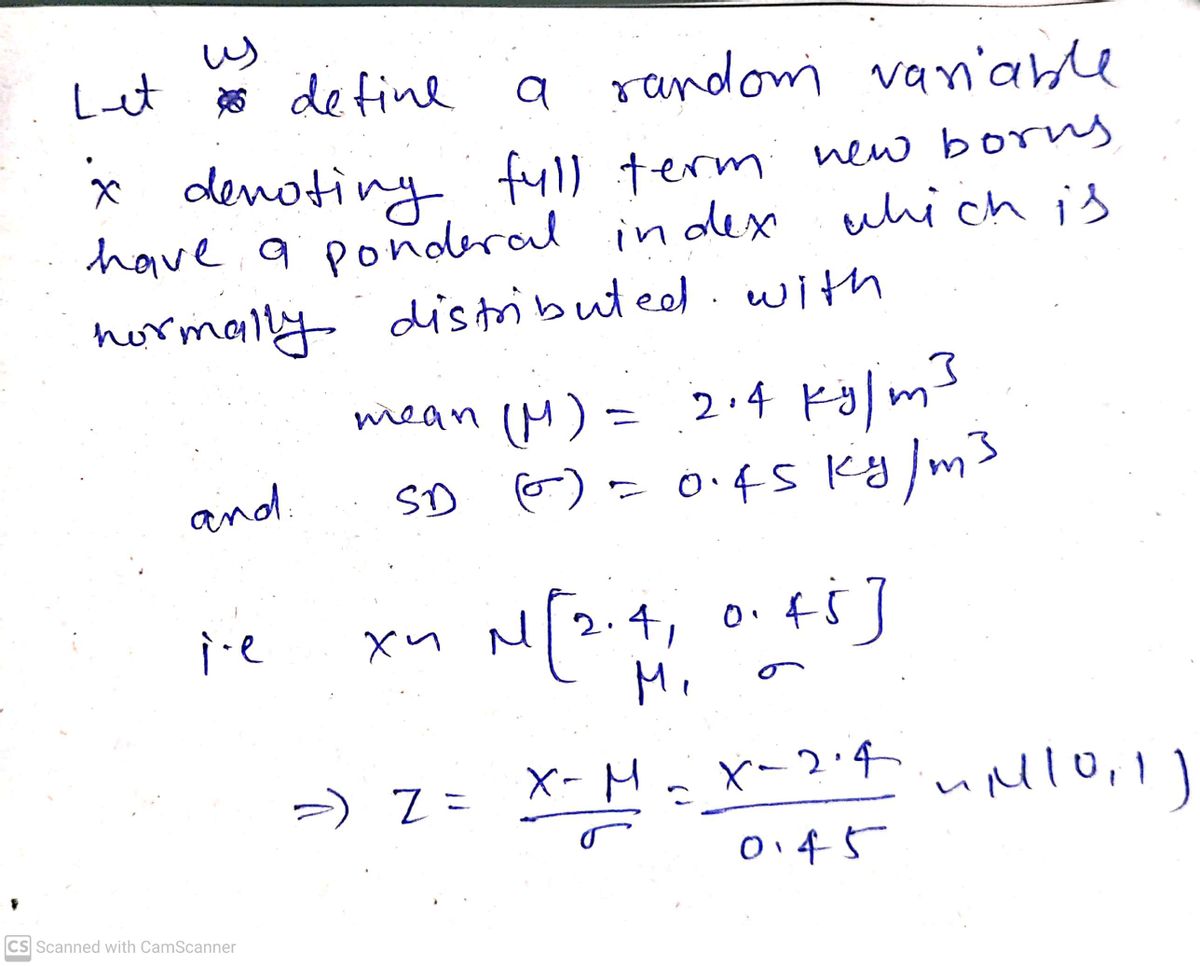 Let us define a random variable
x denoting full term new borns
have a ponderal index which is
normally distributed. with
mean (μ) = 2.4 kg/m³
and. SD (σ) = 0.45 kg/m³
i.e X~ N[2.4, 0.45]
μ, σ
=> Z = X-μ/σ = X-2.4/0.45 ~N(0,1)
CS Scanned with CamScanner